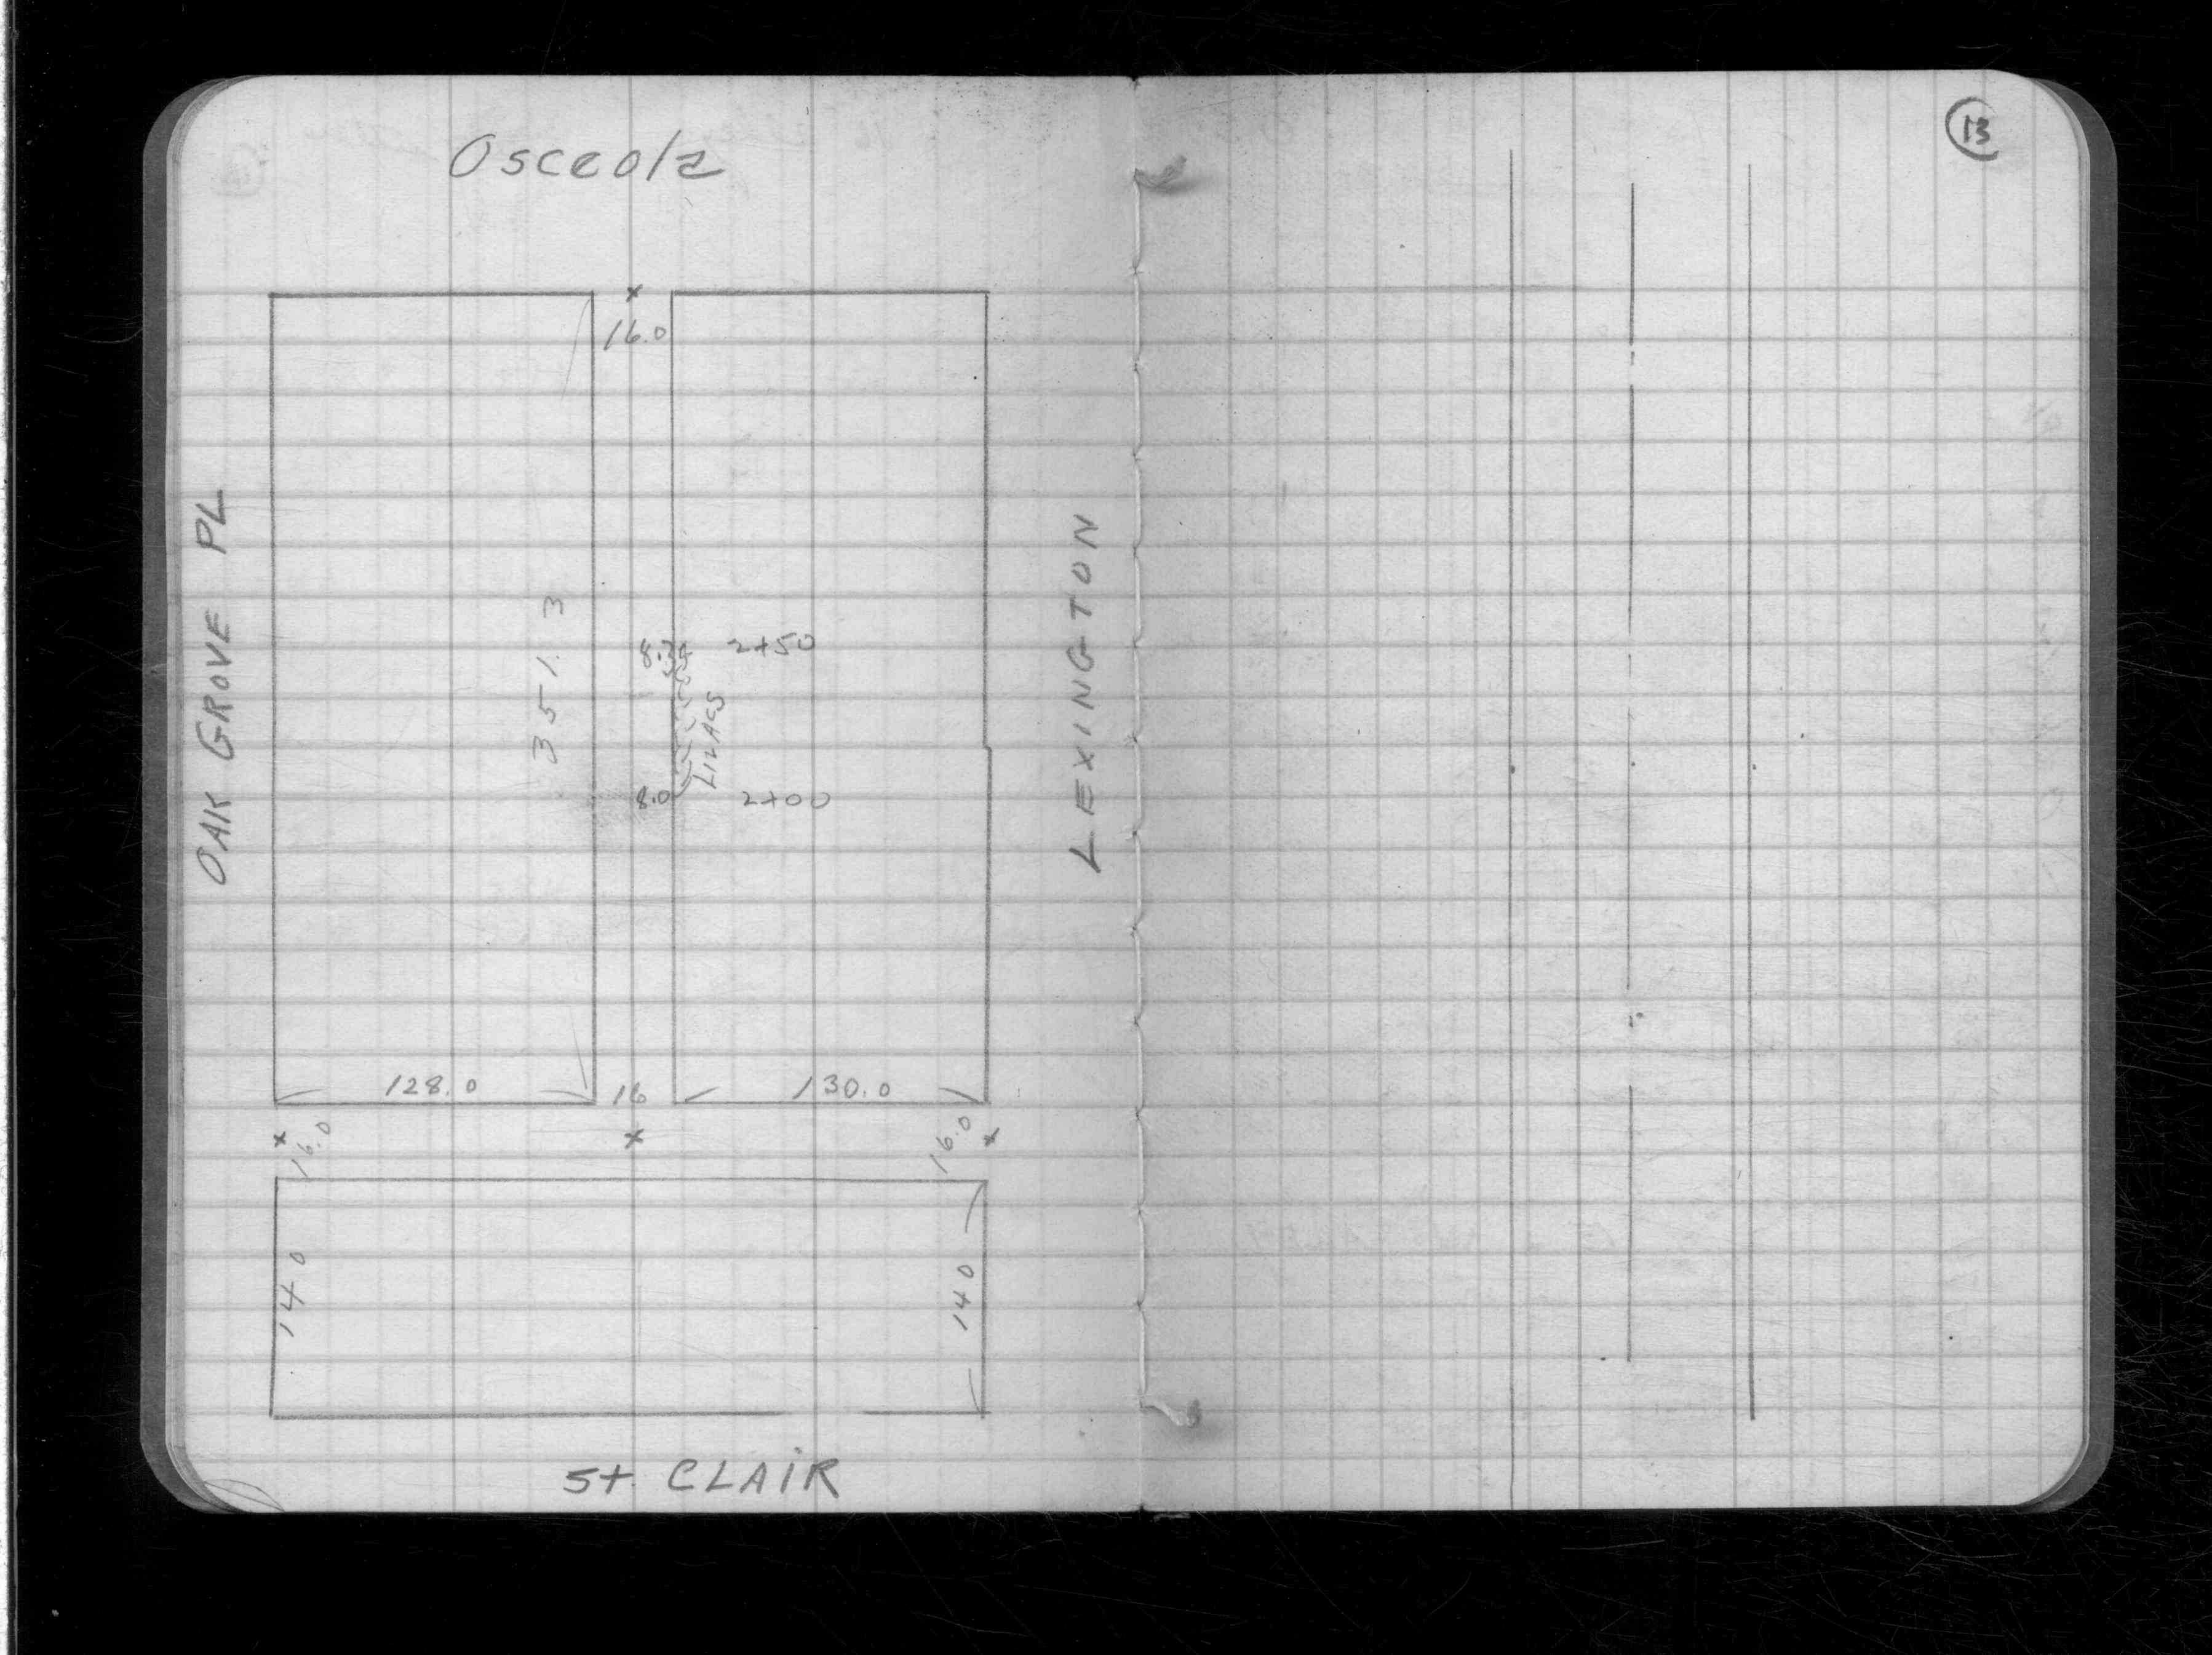 Osceola
13
16.0
OAK GROVE PL
351.3
2+50
LILACS
8.0 2+00
LEXINGTON
128.0 16 130.0
16.0 16.0
140 140
St. CLAIR